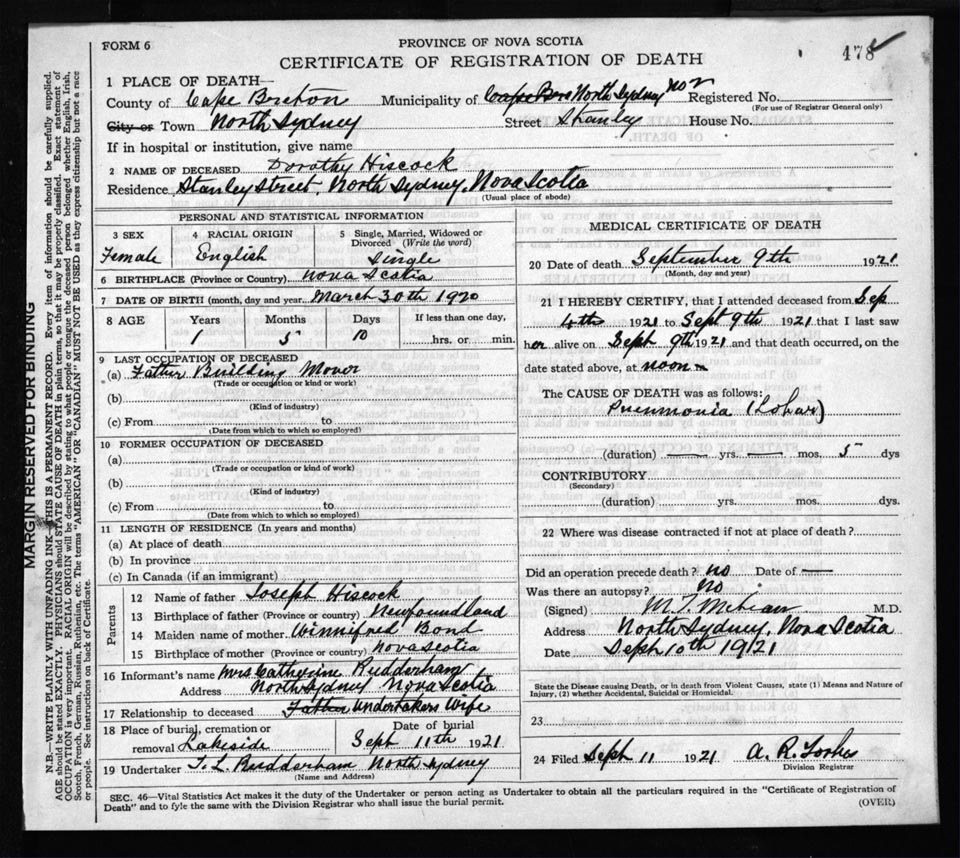 FORM 6
PROVINCE OF NOVA SCOTIA
CERTIFICATE OF REGISTRATION OF DEATH
478
1 PLACE OF DEATH—
County of Cape Breton Municipality of North Sydney No 2 Registered No.
(For use of Registrar General only)
City or Town North Sydney Street Stanley House No.
If in hospital or institution, give name
2 NAME OF DECEASED Dorothy Hiscock
Residence Stanley Street, North Sydney, Nova Scotia
(Usual place of abode)
PERSONAL AND STATISTICAL INFORMATION
3 SEX
Female
4 RACIAL ORIGIN
English
5 Single, Married, Widowed or
Divorced (Write the word)
Single
6 BIRTHPLACE (Province or Country) Nova Scotia
7 DATE OF BIRTH (month, day and year) March 30th 1920
8 AGE
Years
1
Months
5
Days
10
If less than one day,
hrs. or min.
9 LAST OCCUPATION OF DECEASED
(a) Father Building Mover
(Trade or occupation or kind or work)
(b)
(Kind of industry)
(c) From to
(Date from which to which so employed)
10 FORMER OCCUPATION OF DECEASED
(a)
(Trade or occupation or kind of work)
(b)
(Kind of industry)
(c) From to
(Date from which to which so employed)
11 LENGTH OF RESIDENCE (In years and months)
(a) At place of death
(b) In province
(c) In Canada (if an immigrant)
Parents
12 Name of father Joseph Hiscock
13 Birthplace of father (Province or country) Newfoundland
14 Maiden name of mother Winnifred Bond
15 Birthplace of mother (Province or country) Nova Scotia
16 Informant's name Mrs Catherine Rudderham
Address North Sydney Nova Scotia
17 Relationship to deceased Father Undertakers Wife
18 Place of burial, cremation or
removal Lakeside
Date of burial
Sept 11th 1921
19 Undertaker T. L. Rudderham North Sydney
(Name and Address)
MEDICAL CERTIFICATE OF DEATH
20 Date of death September 9th 1921
(Month, day and year)
21 I HEREBY CERTIFY, that I attended deceased from Sep
4th 1921 to Sept 9th 1921 that I last saw
her alive on Sept 9th 1921 and that death occurred, on the
date stated above, at noon m
The CAUSE OF DEATH was as follows:
Pneumonia (Lobar)
(duration) yrs. mos. 5 dys
CONTRIBUTORY
(Secondary)
(duration) yrs. mos. dys.
22 Where was disease contracted if not at place of death?
Did an operation precede death? no Date of
Was there an autopsy? No
(Signed) M.D.
Address North Sydney, Nova Scotia
Date Sept 10th 1921
State the Disease causing Death, or in death from Violent Causes, state (1) Means and Nature of
Injury, (2) whether Accidental, Suicidal or Homicidal.
23
24 Filed Sept 11 1921 A. R. Forbes
Division Registrar
SEC. 46—Vital Statistics Act makes it the duty of the Undertaker or person acting as Undertaker to obtain all the particulars required in the "Certificate of Registration of
Death" and to fyle the same with the Division Registrar who shall issue the burial permit.
(OVER)
MARGIN RESERVED FOR BINDING
N.B.—WRITE PLAINLY WITH UNFADING INK—THIS IS A PERMANENT RECORD. Every item of information should be carefully supplied.
AGE should be stated EXACTLY. PHYSICIANS should STATE CAUSE OF DEATH in plain terms, so that it may be properly classified. Exact statement of
OCCUPATION is very important. RACIAL ORIGIN will be described by stating to what people or tongue the deceased person belonged whether English, Irish,
Scotch, French, German, Russian, Ruthenian, etc. The terms "AMERICAN" OR "CANADIAN" MUST NOT BE USED as they express citizenship but not a race
or people. See instructions on back of Certificate.